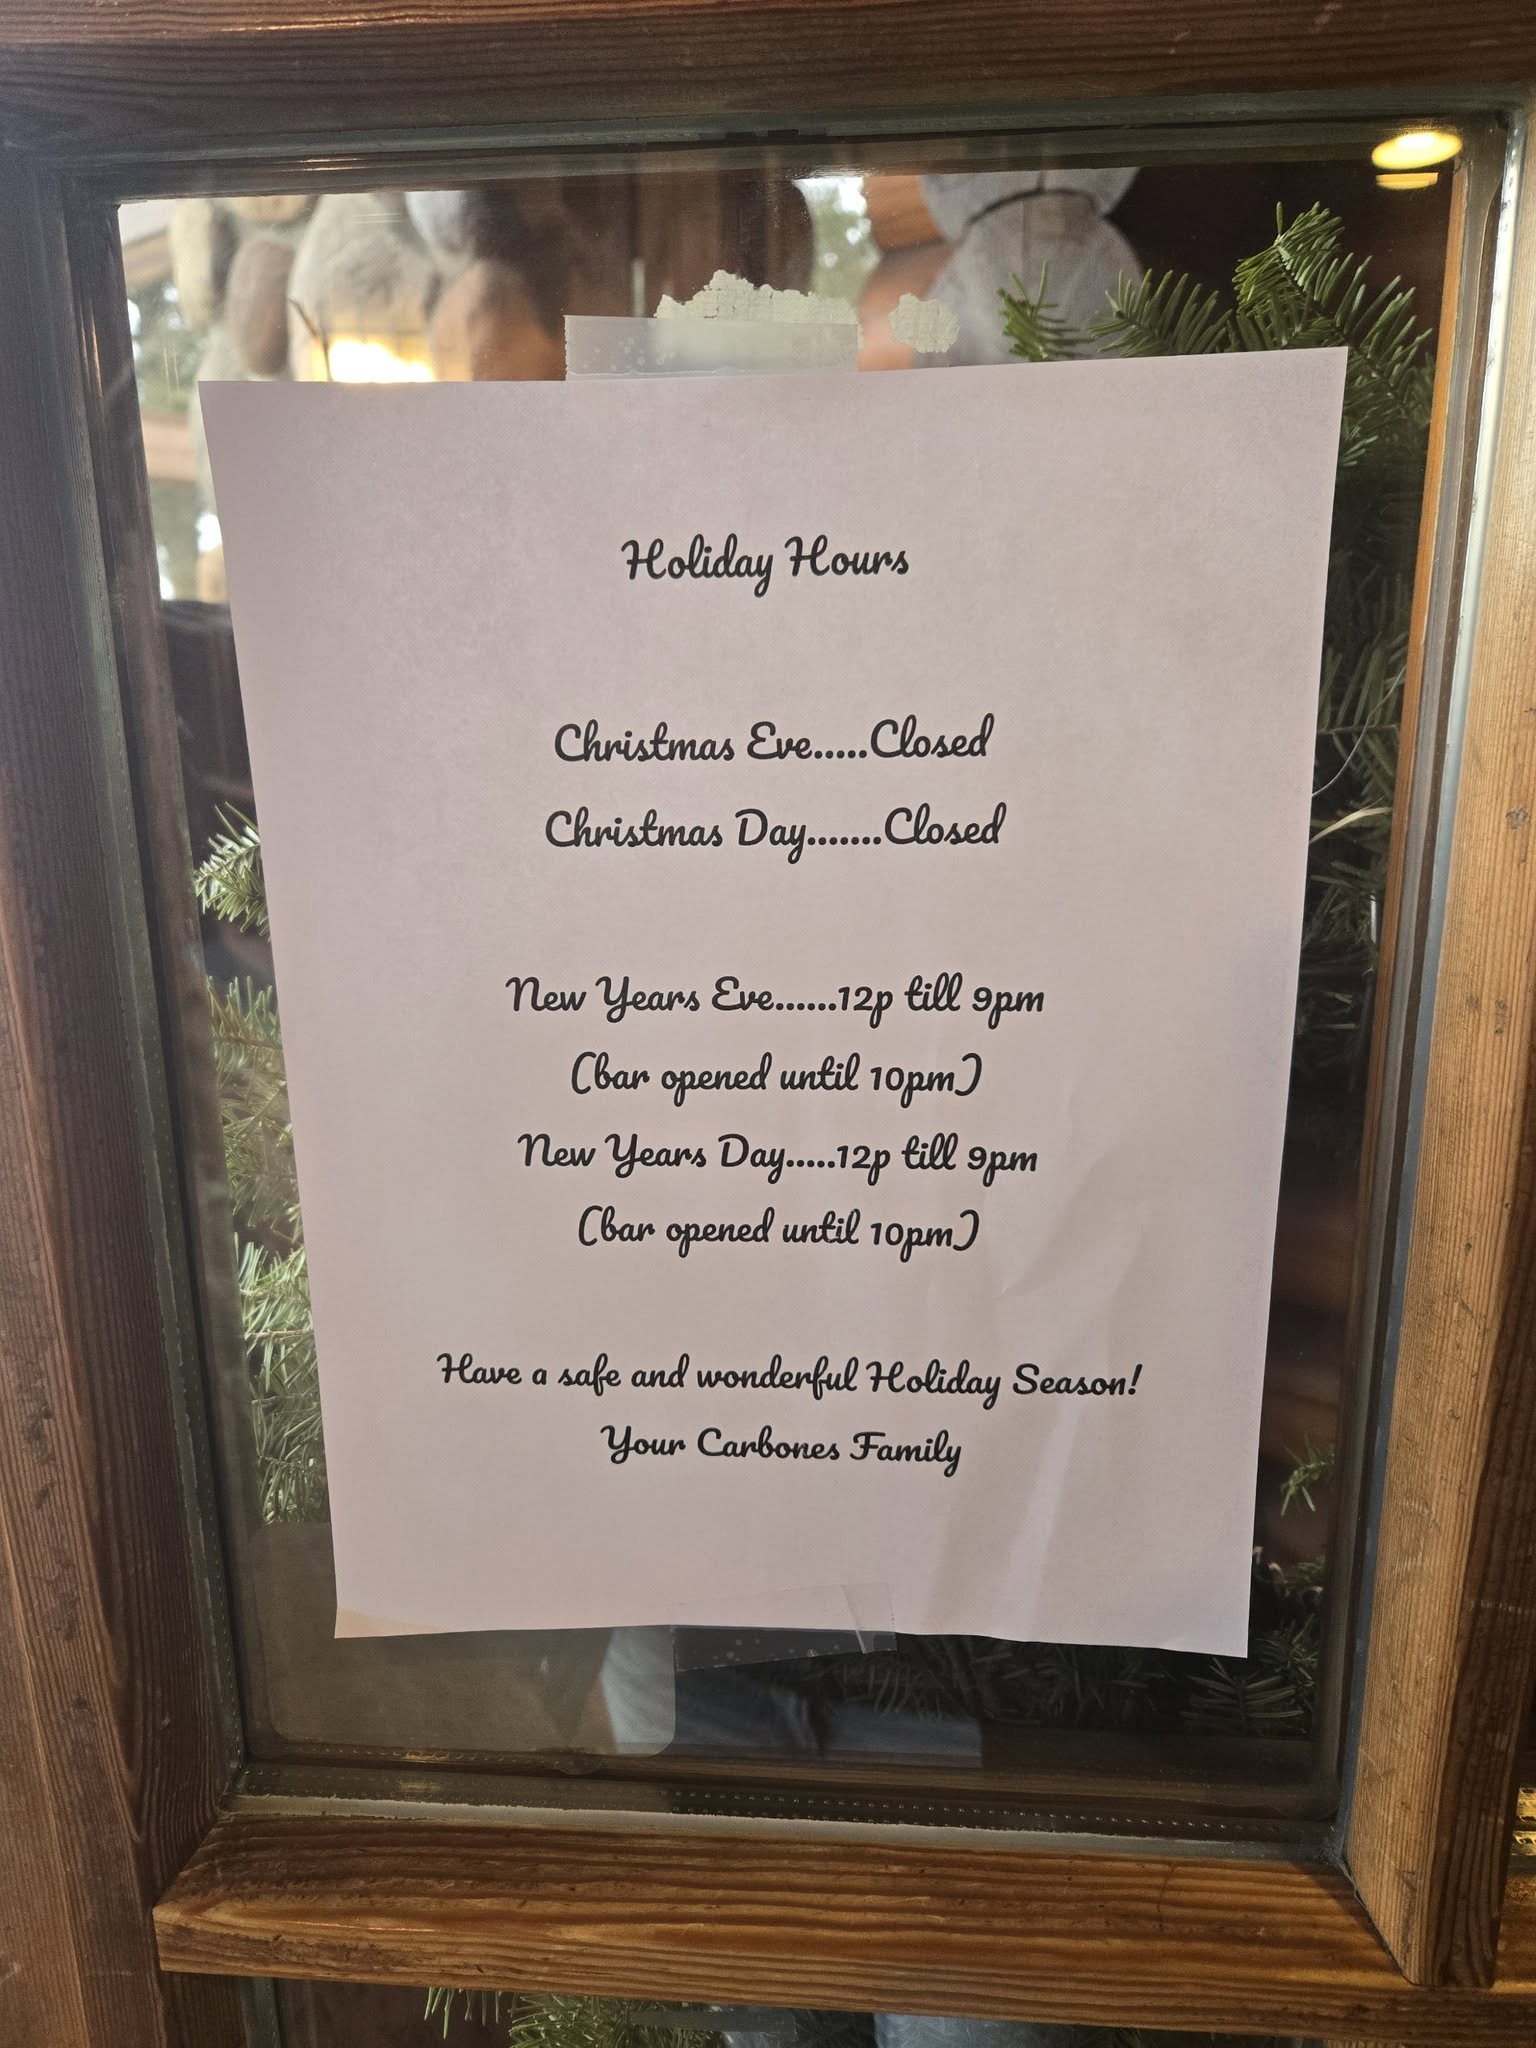 Holiday Hours
Christmas Eve.....Closed
Christmas Day.......Closed
New Years Eve......12p till 9pm
(bar opened until 10pm)
New Years Day.....12p till 9pm
(bar opened until 10pm)
Have a safe and wonderful Holiday Season!
Your Carbones Family